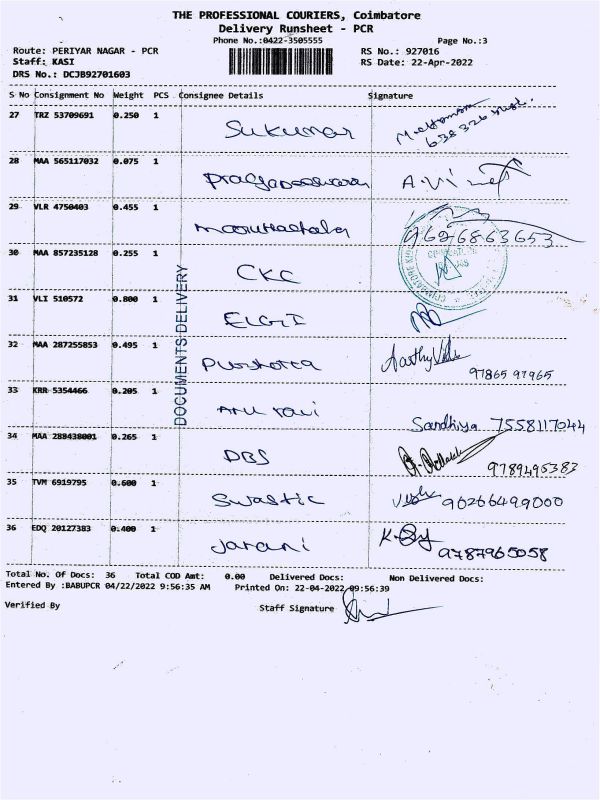 THE PROFESSIONAL COURIERS, Coimbatore
Delivery Runsheet - PCR
Phone No.:0422-3505555 Page No.:3
Route: PERIYAR NAGAR - PCR RS No.: 927016
Staff: KASI RS Date: 22-Apr-2022
DRS No.: DCJB92701603
S No Consignment No Weight PCS Consignee Details Signature
27 TRZ 53709691 0.250 1 Sukumar
28 MAA 565117032 0.075 1 A.Vi
29 VLR 4750403 0.455 1 9626863653
30 MAA 857235128 0.255 1 CKC
31 VLI 510572 0.800 1 ELGI
32 MAA 287255853 0.495 1 Aarthy 97865 97965
33 KRR 5354466 0.205 1 Anu ravi Sandhiya 7558117044
34 MAA 288438001 0.265 1 DBS 9789495383
35 TVM 6919795 0.600 1 Swastic 90266499000
36 EDQ 20127383 0.400 1 Jarani 9787965058
DOCUMENTS DELIVERY
Total No. Of Docs: 36 Total COD Amt: 0.00 Delivered Docs: Non Delivered Docs:
Entered By :BABUPCR 04/22/2022 9:56:35 AM Printed On: 22-04-2022 09:56:39
Verified By Staff Signature